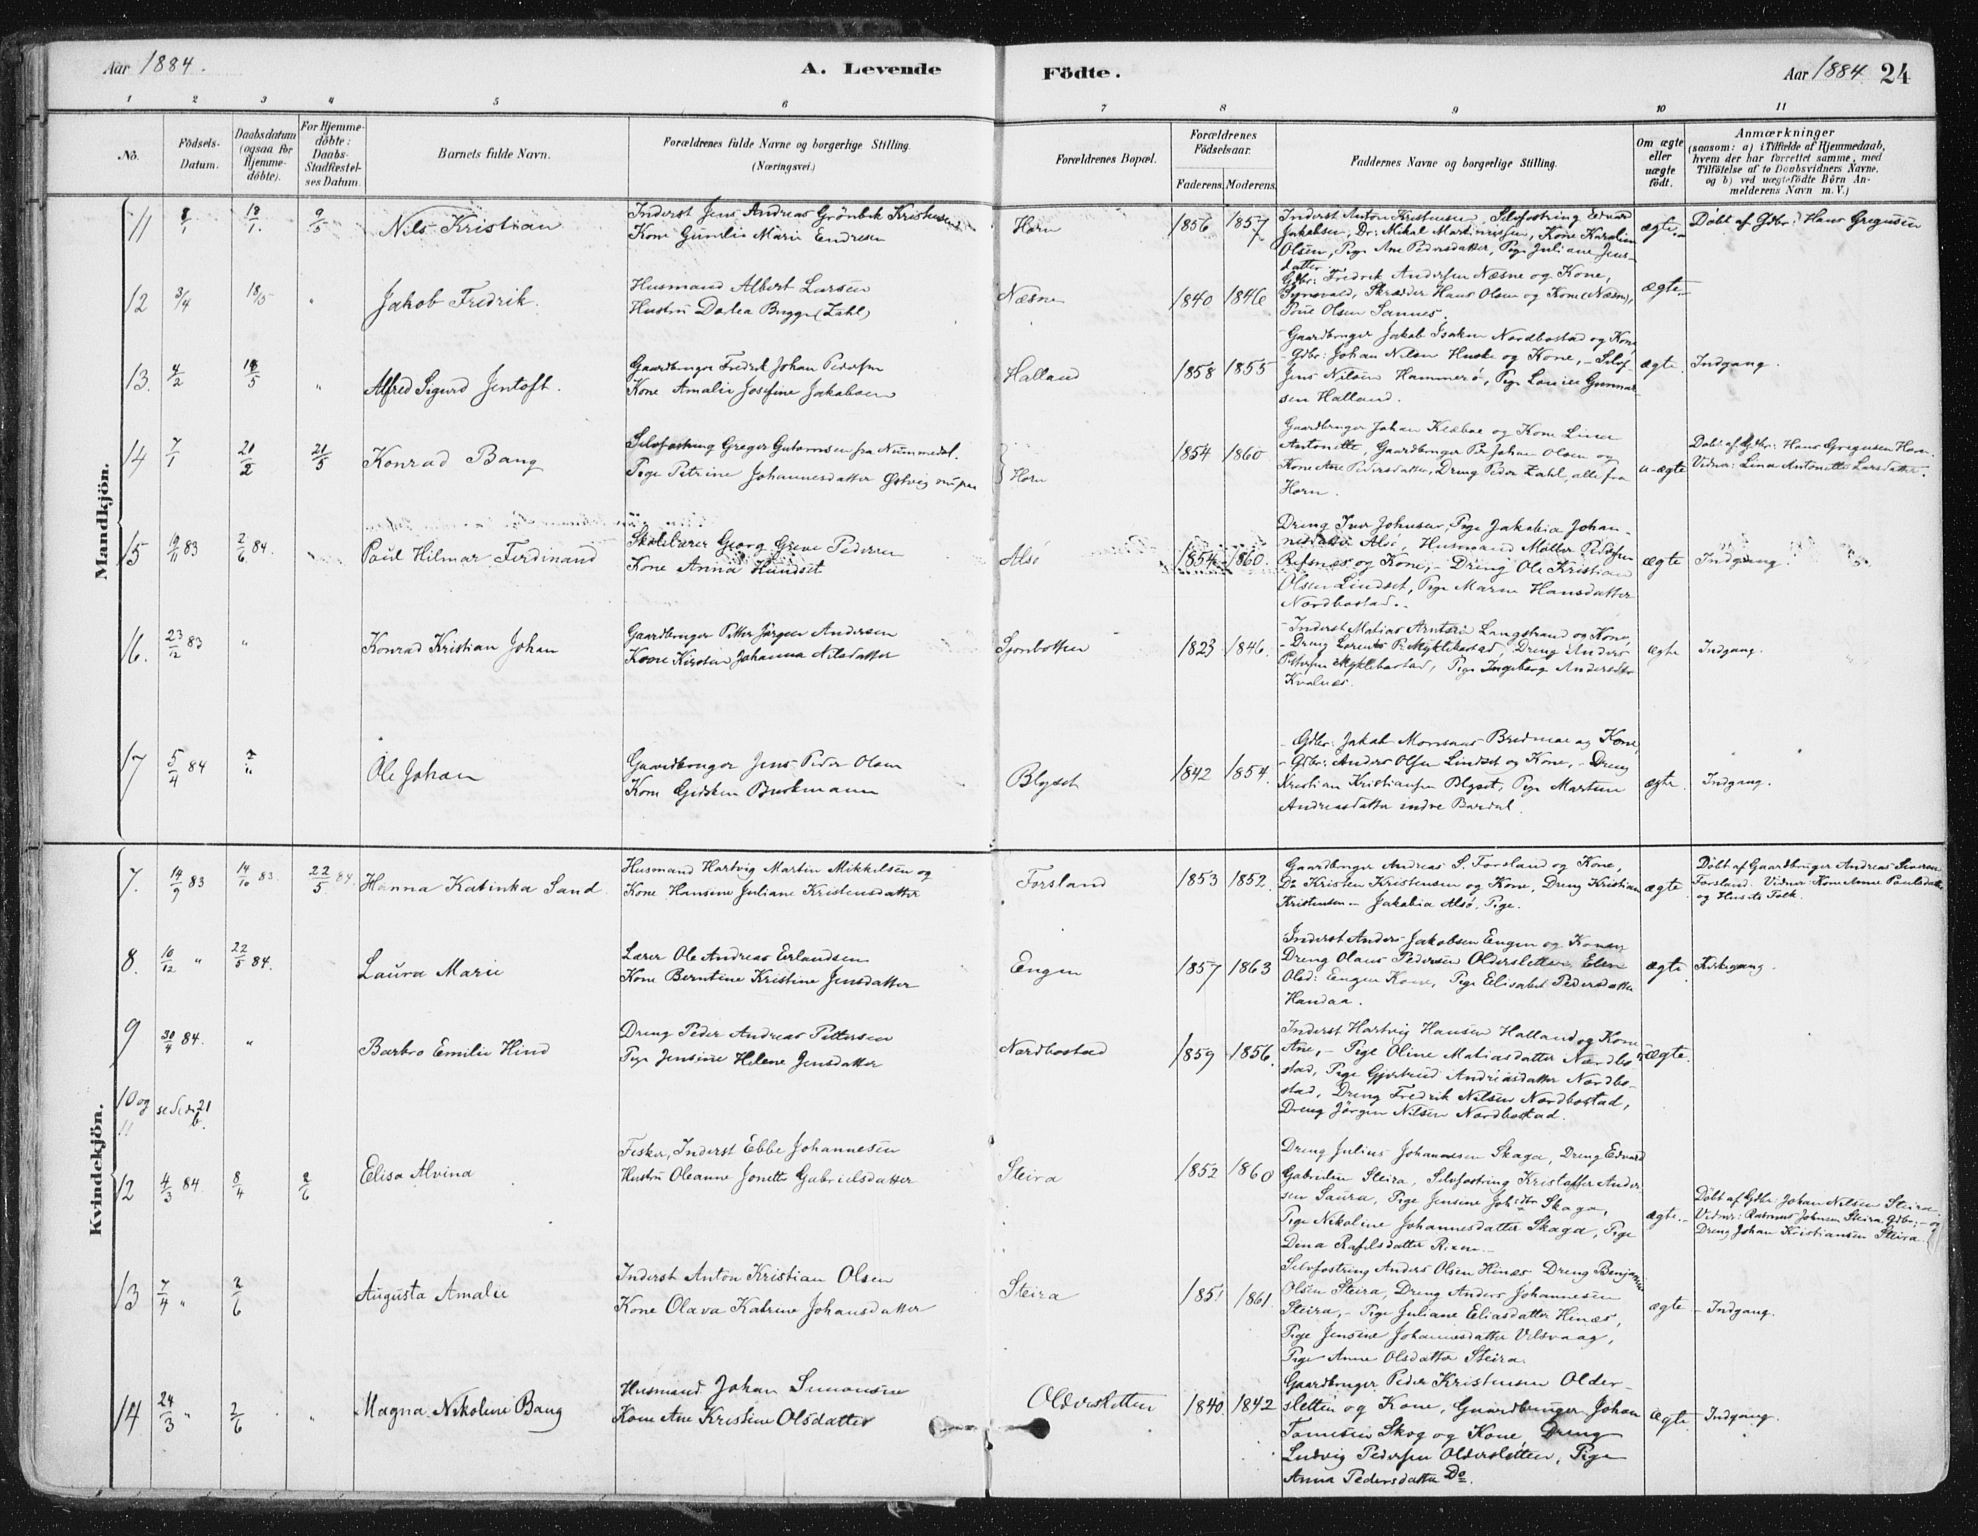 Aar 1884.
A. Levende Födte.
Aar 1884. 24
1 2 3 4 5 6 7 8 9 10 11
No.
Födsels-Datum.
Daabsdatum (ogsaa for Hjemme-döbte).
For Hjemme-döbte: Daabs-Stadfæstel-ses Datum.
Barnets fulde Navn.
Forældrenes fulde Navne og borgerlige Stilling. (Næringsvei.)
Forældrenes Bopæl.
Forældrenes Födselsaar.
Faderens. Moderens.
Faddernes Navne og borgerlige Stilling.
Om ægte eller uægte födt.
Anmærkninger
(saasom: a) i Tilfælde af Hjemmedaab, hvem der har forrettet samme, med Tilföielse af to Daabsvidners Navne, og b) ved uægtefödte Börn An-melderens Navn m. V.)
Mandkjön.
11 8/1 13/1. 9/5 Nils Kristian
Inderst Jens Andreas Grönbek Kristensen
Kone Gunelie Marie Endresen
Horn 1856 1857
Inderst Anton Kristensen, Selvfostring Edvard
Jakobsen, Do: Mikal Martinussen, Kone Karoline
Olsen, Pige Ane Pedersdatter, Pige Juliane Jens-
datter
ægte
Döbt af Gdbr: Hans Gregusen
12 3/4 18/5 " Jakob Fredrik.
Husmand Albert Larsen
Hustru Dortea Bugge (Zahl)
Næsne 1840 1846
Gdbr: Fredrik Andersen Næsne og Kone,
Skrædder Hans Olsen og Kone (Næsne),
Olsen Sannes.
ægte
13. 4/2 18/5 " Alfred Sigurd Jentoft.
Gaardbruger Fredrik Johan Pedersen
Kone Amalie Josefine Jakobsen
Halland 1858 1855
Gaardbruger Jakob Isaksen Nordbostad og Kone,
- Gdbr: Johan Nilsen Huske og Kone, - Selvf-
Jens Nilsen Hammerö, Pige Louise Gunnar-
sen Halland.
ægte. Indgang.
14 7/1 21/2 21/5 Konrad Bang
Selvfostring Greger Guttormsen fra Nummedal.
Pige Petrine Johannesdatter Östvig nu paa
Horn 1854 1860
Gaardbruger Johan Klæboe og Kone Lina
Antonette, Gaardbruger Per Johan Olsen og
Kone Ane Pedersdatter, Dreng Peder Zahl, alle fra
Horn.
u-ægte
Döbt af Gdbr: Hans Gregusen Horn.
Vidner: Lina Antonette Larsdatter.
15 19/11 83 2/6 84. Paul Hilmar Ferdinand
Skolelærer Georg Greve Pedersen
Kone Anna Hundset
Alsö 1854 1860.
Dreng Iver Johnsen, Pige Jakobia Johan-
nesdatter Alsö, Husmand Möller Pedersen
Refsnes og Kone, - Dreng Ole Kristian
Olsen Lindset, Pige Maren Hansdatter
Nordbostad.
ægte Indgang.
16. 23/12 83 " Konrad Kristian Johan
Gaardbruger Petter Jörgen Andersen
Kone Kirsten Johanna Nilsdatter
Sjonbotten 1823 1846.
- Inderst Matias Arntsen Langstrand og Kone,
- Dreng Lorents P. Myklebostad, Dreng Anders
Pettersen Myklebostad, Pige Ingeborg Andersdtr
Kvalnes.
ægte Indgang.
17 5/4 84 2/" Ole Johan
Gaardbruger Jens Peder Olsen
Kone Gidsken Burkmann
Blyset 1842 1854.
- Gdbr: Jakob Monsaas Bredmoe og Kone,
- Gdbr: Anders Olsen Lindset og Kone, - Dreng
Kristian Kristiansen Blyset, Pige Martine
Andreasdatter indre Bardal.
ægte. Indgang.
Kvindekjön.
7. 14/9 83 14/10 83. 22/5 84. Hanna Katinka Sand.
Husmand Hartvig Martin Mikkelsen og
Kone Hansine Juliane Kristensdatter
Forsland 1853 1852.
Gaardbruger Andreas S. Forsland og Kone,
Do Kristen Kristensen og Kone, Dreng Kristian
Kristensen - Jakobia Alsö, Pige.
ægte
Döbt af Gaardbruger Andreas Siversen
Forsland. Vidner: Kone Anne Paulsdatter
og Husets Folk.
8. 10/12 " 22/5 84. Laura Marie
Lærer Ole Andreas Erlandsen
Kone Berntine Kristine Jensdatter
Engen 1857 1863
Inderst Anders Jakobsen Engen og Kone,
Dreng Olaus Pedersen Oldersletten, Elen
Olsd: Engen Kone, Pige Elisabet Pedersdatter
Handaa.
ægte Kirkegang.
9 30/4 84. " Barbro Emilie Hind
Dreng Peder Andreas Pettersen
Pige Jensine Helene Jensdatter
Nordbostad 1859 1856.
Inderst Hartvig Hansen Halland og Kone
Ane, - Pige Oline Matiasdatter Nordbo-
stad, Pige Gjertrud Andreasdatter Nordbo-
stad, Dreng Fredrik Nilsen Nordbostad,
Dreng Jörgen Nilsen Nordbostad.
ægte.
10 og 11 se 21/6.
12 4/3 84. 8/4 2/6 Elisa Alvina
Fisker, Inderst Ebbe Johannesen
Hustru Oleanne Jonette Gabrielsdatter
Steira 1852 1860
Dreng Julius Johannesen Skaga, Dreng Edvard
Gabrielsen Steira, Selvfostring Kristoffer Ander-
sen Saura, Pige Jensine Joh:dtr Skaga,
Pige Nikoline Johannesdatter Skaga, Pige
Dena Rafelsdatter
ægte.
Döbt af Gdbr. Johan Nilsen Steira.
Vidner: Rasmus Johnsen Steira Gdbr, - og
Dreng Johan Kristiansen Steira.
13 7/4 " 2/6 Augusta Amalie
Inderst Anton Kristian Olsen
Kone Olava Katrine Johansdatter
Steira 1851 1861.
Selvfostring Anders Olsen Hinæs Dreng Benjamin
Olsen Steira, Dreng Anders Johannesen
Steira, - Pige Juliane Eliasdatter Hinæs,
Pige Jensine Johannesdatter Ulsvaag,
Pige Anne Olsdatter Steira.
ægte - Indgang.
14 24/3 " 2/6 " Magna Nikoline Bang
Husmand Johan Simonsen
Kone Ane Kristine Olsdatter
Oldersletten 1840. 1842
Gaardbruger Peder Kristensen Older-
sletten og Kone, Gaardbruger Johan
Tomesen Skog og Kone Dreng
Ludvig Pedersen Oldersletten, Pige
Anna Pedersdatter Do.
ægte. Indgang.